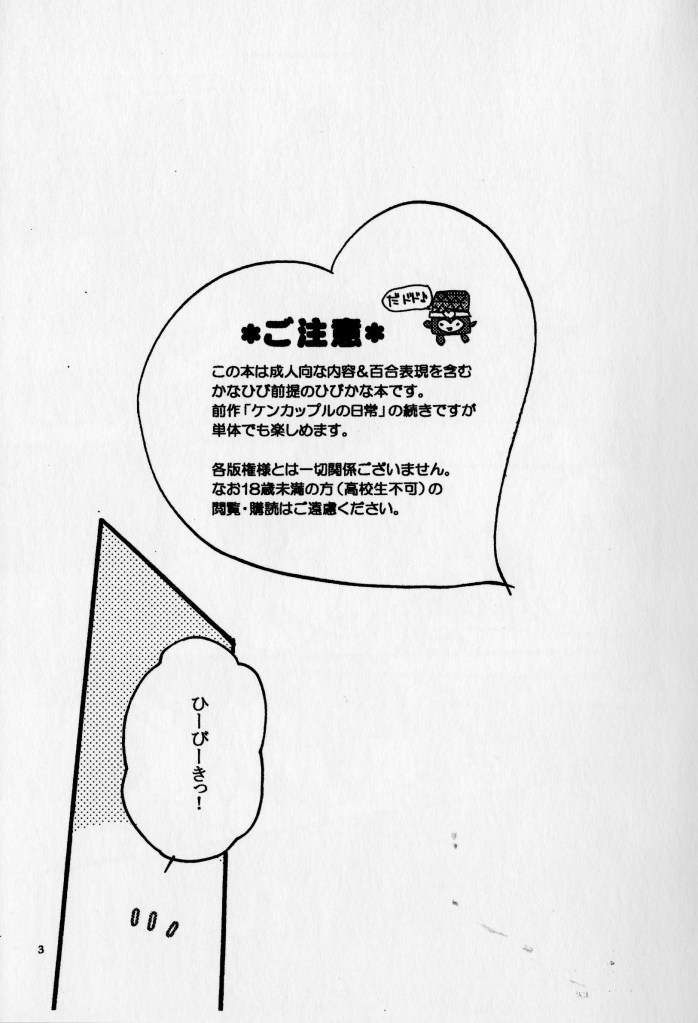 だドド♪
*ご注意*
この本は成人向な内容&百合表現を含む
かなひび前提のひびかな本です。
前作「ケンカップルの日常」の続きですが
単体でも楽しめます。
各版権様とは一切関係ございません。
なお18歳未満の方(高校生不可)の
閲覧・購読はご遠慮ください。
ひーびーきっ!
3